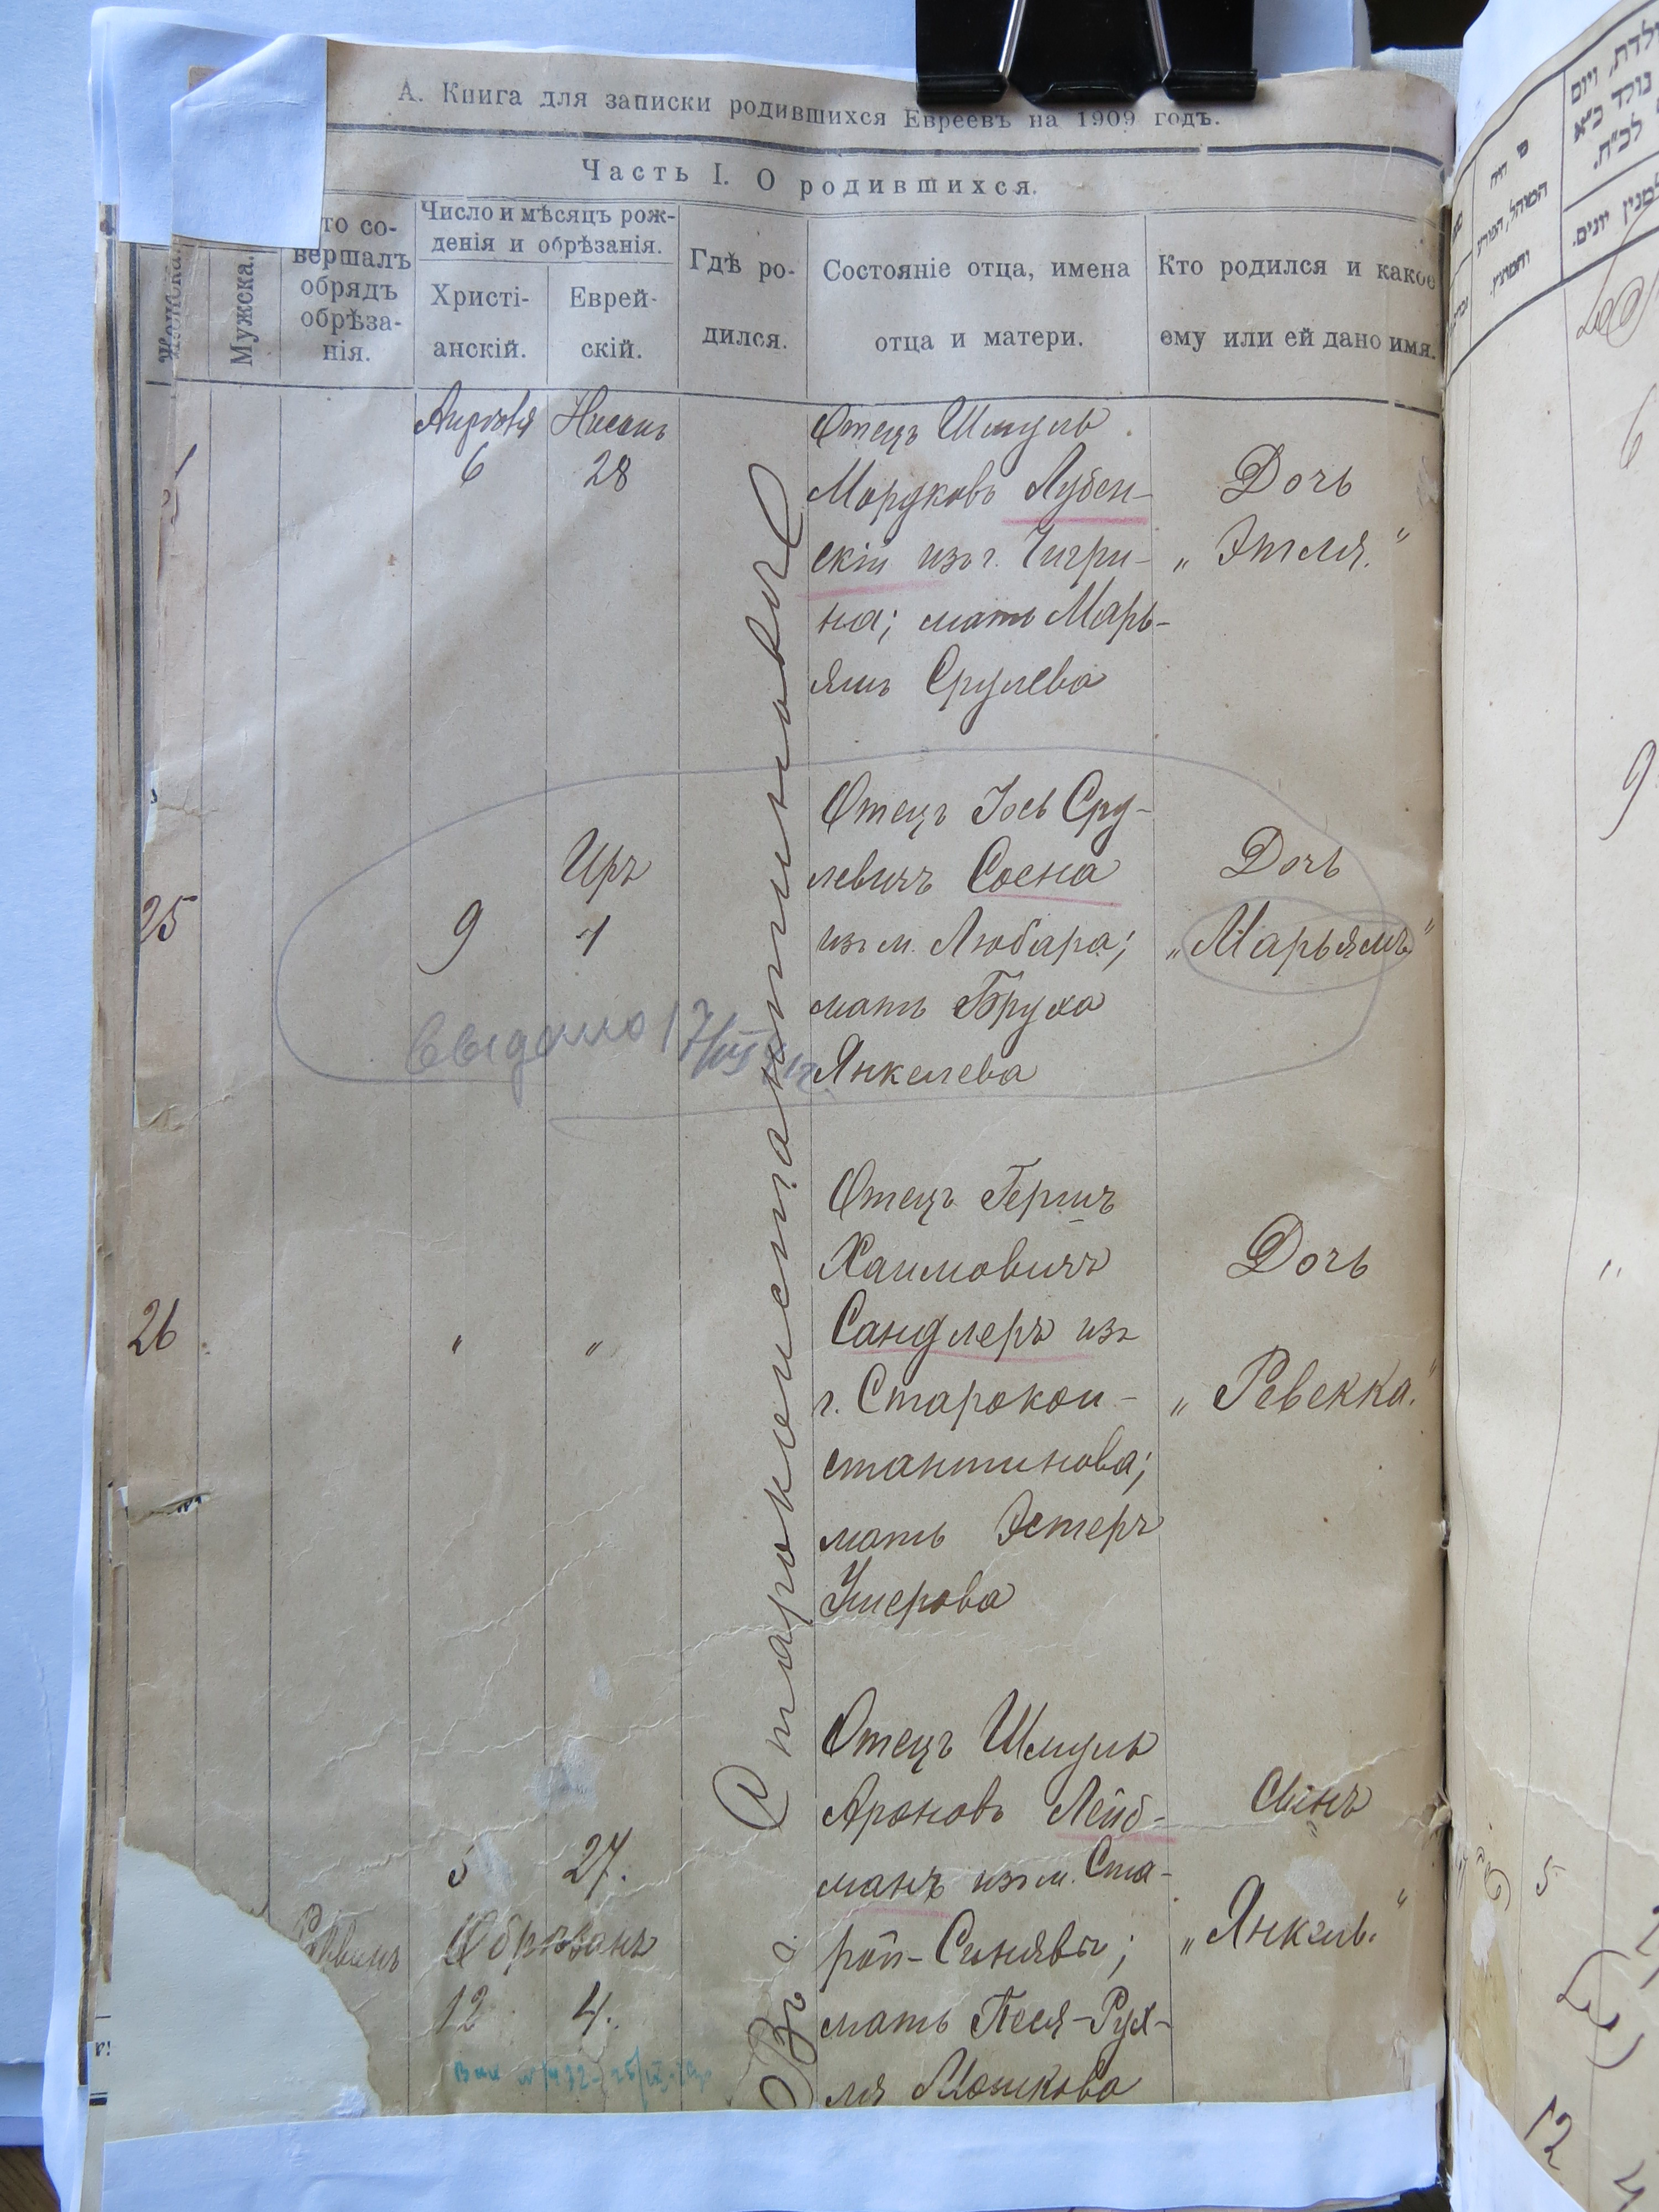 А. Книга для записки родившихся Евреевъ на 1909 годъ.
Часть I. О родившихся.
Женска.
Мужска.
то со-
вершалъ
обрядъ
обрѣза-
нія.
Число и мѣсяцъ рож-
денія и обрѣзанія.
Христі-
анскій.
Еврей-
скій.
Гдѣ ро-
дился.
Состояніе отца, имена
отца и матери.
Кто родился и какое
ему или ей дано имя.
Въ г. Староконстантиновѣ
Апрѣля
6
Нисанъ
28
Отецъ Шмуль
Мордковъ Лубен-
скій изъ г. Чигри-
на; мать Марь-
ямъ Срулева
Дочь
„Этля."
25
9
Иръ
1
Отецъ Іосъ Сру-
левичъ Сосна
изъ м. Любара;
мать Бруха
Янкелева
Дочь
„Марьямъ"
Выдано 17/
26
"
"
Отецъ Гершъ
Хаимовичъ
Сандлеръ изъ
г. Старокон-
стантинова;
мать Эстеръ
Ушерова
Дочь
„Ревекка."
5
27.
Обрѣзанъ
12
4.
Отецъ Шмуль
Ароновъ Лейб-
манъ изъ м. Ста-
рой-Синявы;
мать Песя-Рух-
ля Мошкова
Сынъ
„Янкель."
9
"
5
12